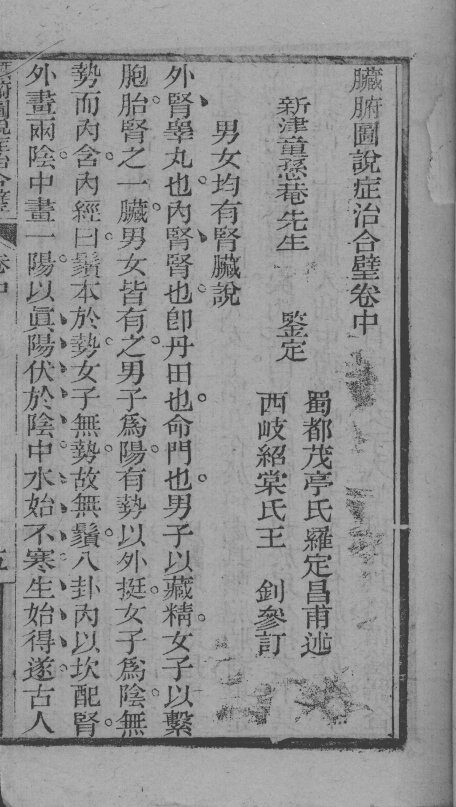 臟腑圖說症治合璧卷中
新津童愻菴先生 鑒定
蜀都茂亭氏羅定昌甫述
西岐紹棠氏王 釗參訂
男女均有腎臟說
外腎睾丸也內腎腎也卽丹田也命門也男子以藏精女子以繫
胞胎腎之一臟男女皆有之男子爲陽有勢以外挺女子爲陰無
勢而內含內經曰鬚本於勢女子無勢故無鬚八卦內以坎配腎
外畫兩陰中畫一陽以眞陽伏於陰中水始不寒生始得遂古人
臟腑圖說症治合璧 卷中